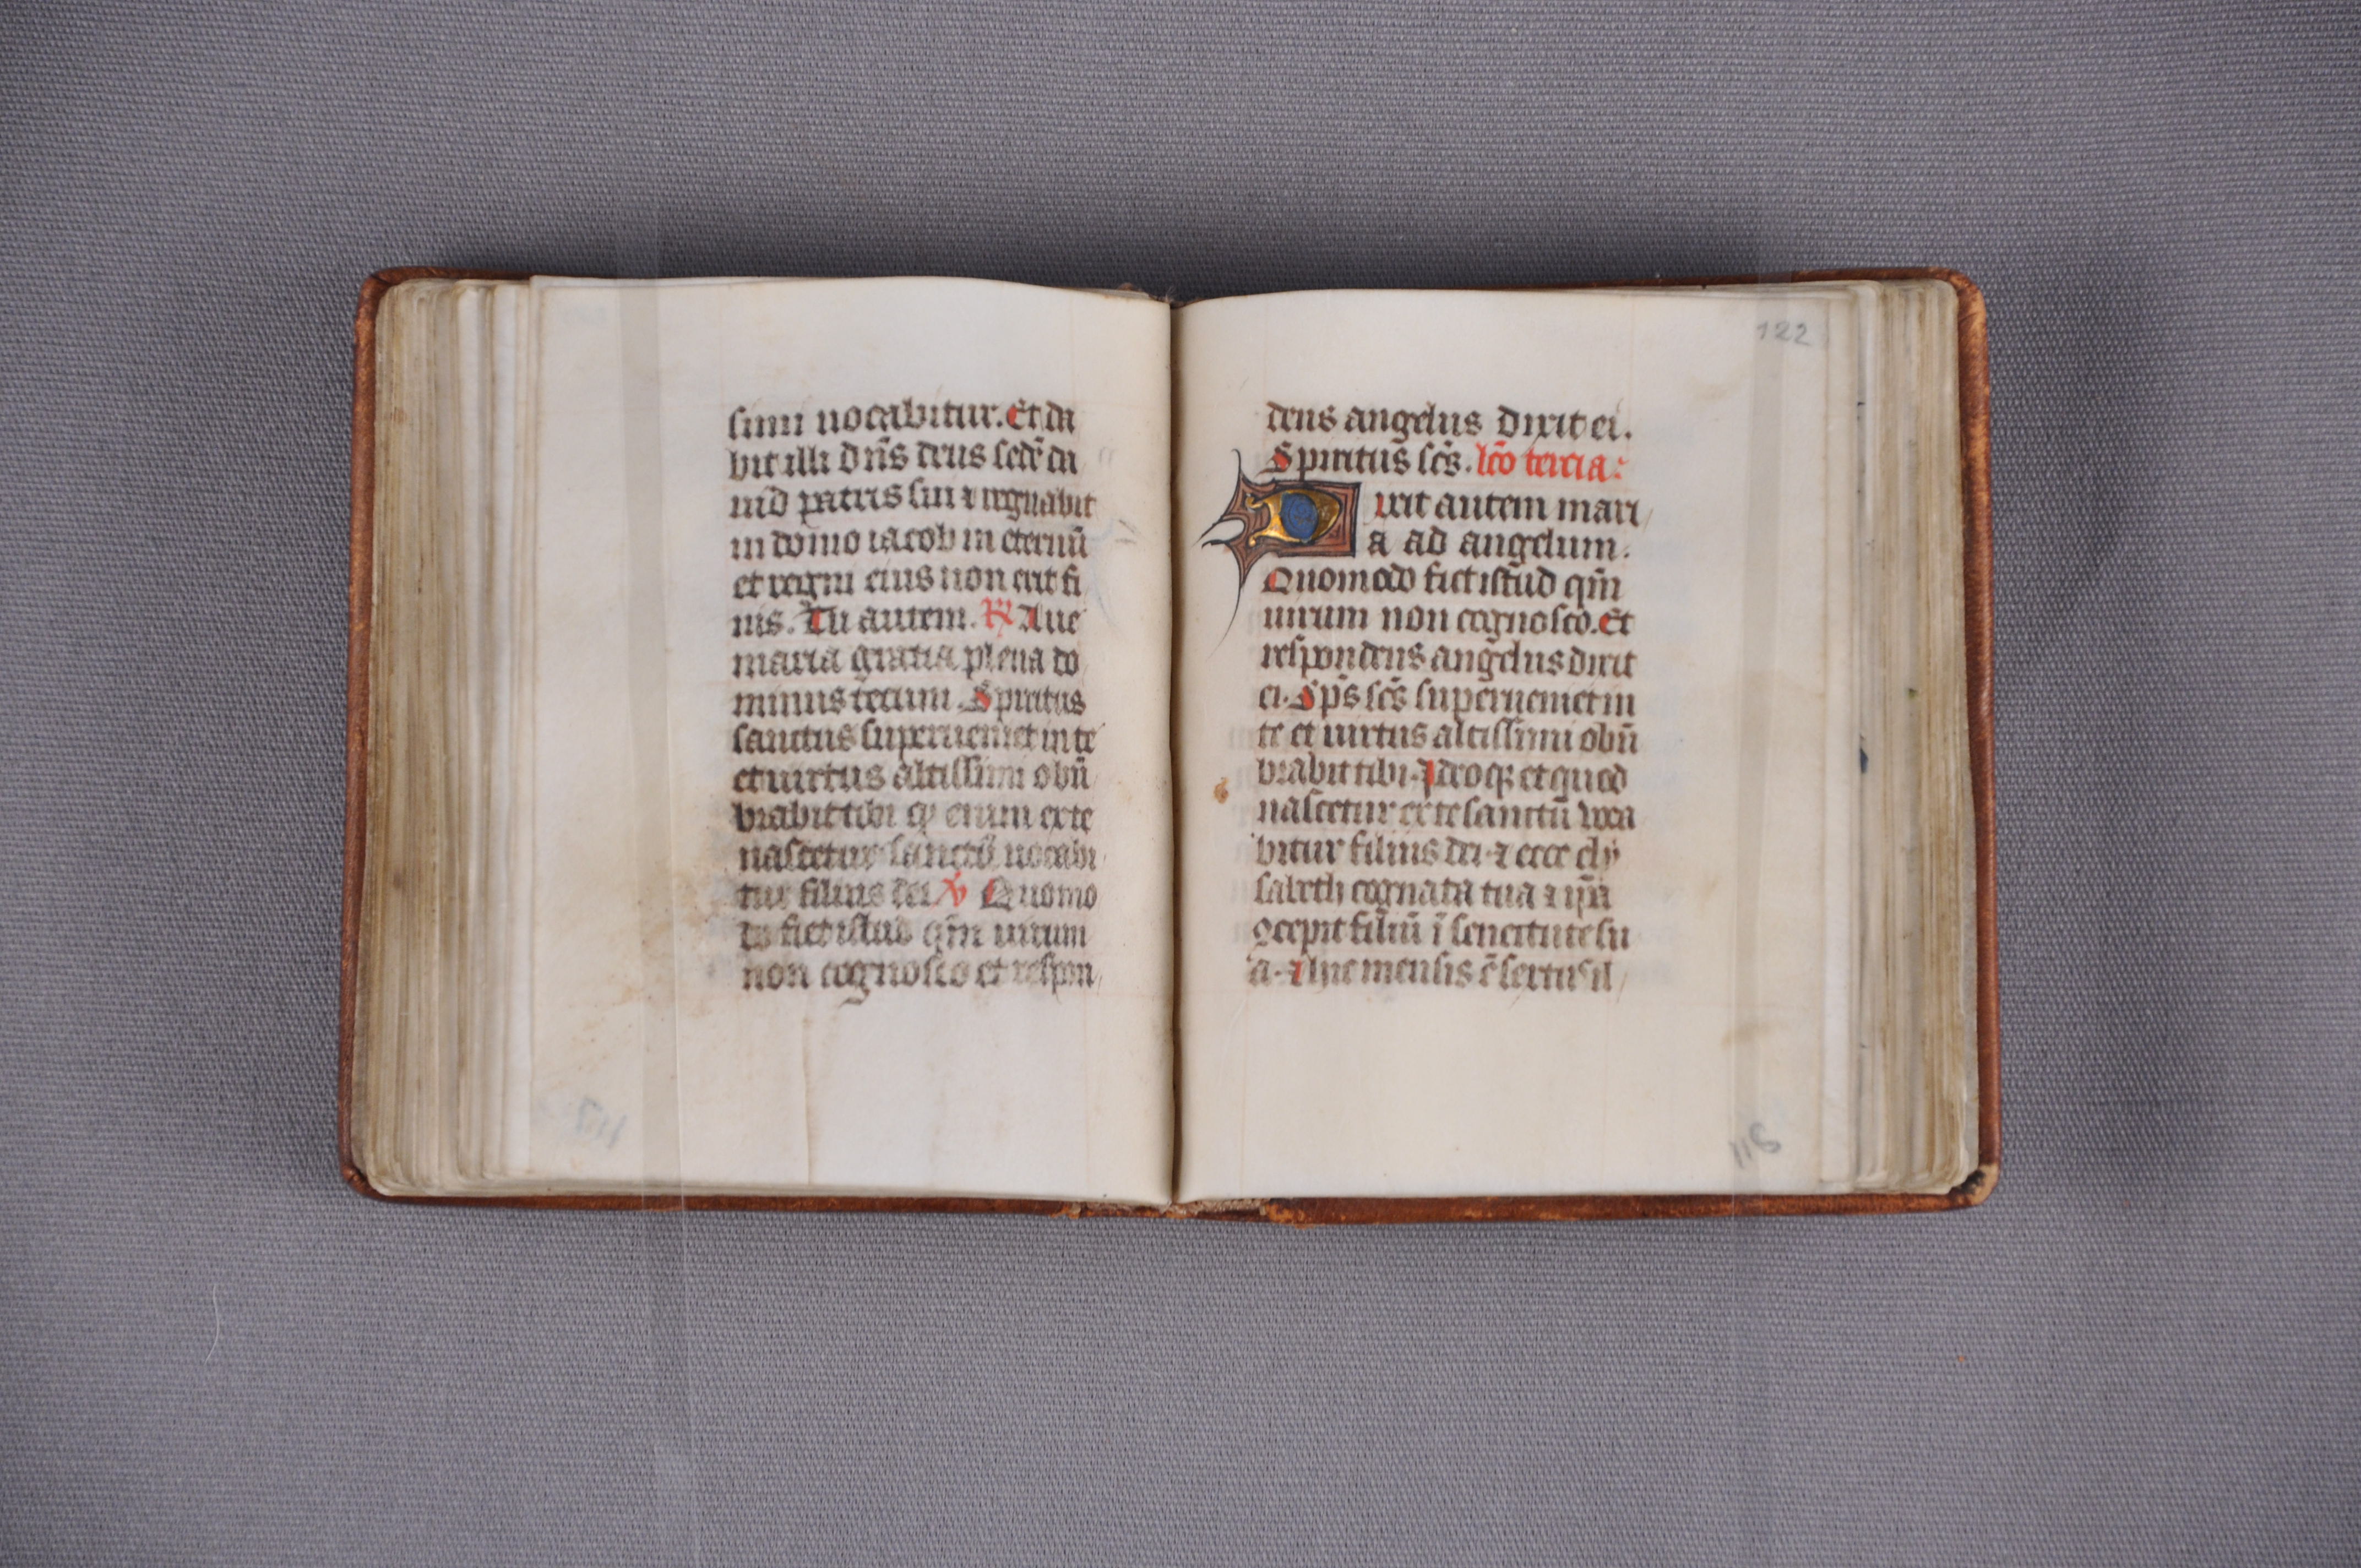 simi uocabitur. Et da
bit illi dñs deus sedē da
uid patris sui ⁊ regnabit
in domo iacob in eternū
et regni eius non erit fi
nis. Tu autem. ℟ Aue
maria gratia plena do
minus tecum. Spiritus
sanctus superueniet in te
et uirtus altissimi obū
brabit tibi qꝫ enim ex te
nascetur sanctū uocabi
tur filius dei ℣ Quomo
do fiet istud qm̄ uirum
non cognosco et respon
122
dens angelus dixit ei.
Spiritus sc̄s. lc̄o tercia:
Dixit autem mari
a ad angelum.
Quomodo fiet istud qm̄
uirum non cognosco. Et
respondens angelus dixit
ei. Sp̄s sc̄s superueniet in
te et uirtus altissimi obū
brabit tibi. Ideoqꝫ et quod
nascetur ex te sanctū voca
bitur filius dei. ⁊ ecce ely
sabeth cognata tua ⁊ ip̄a
ꝯcepit filiū ī senectute su
a. ⁊ hic mensis ē sextus il
118